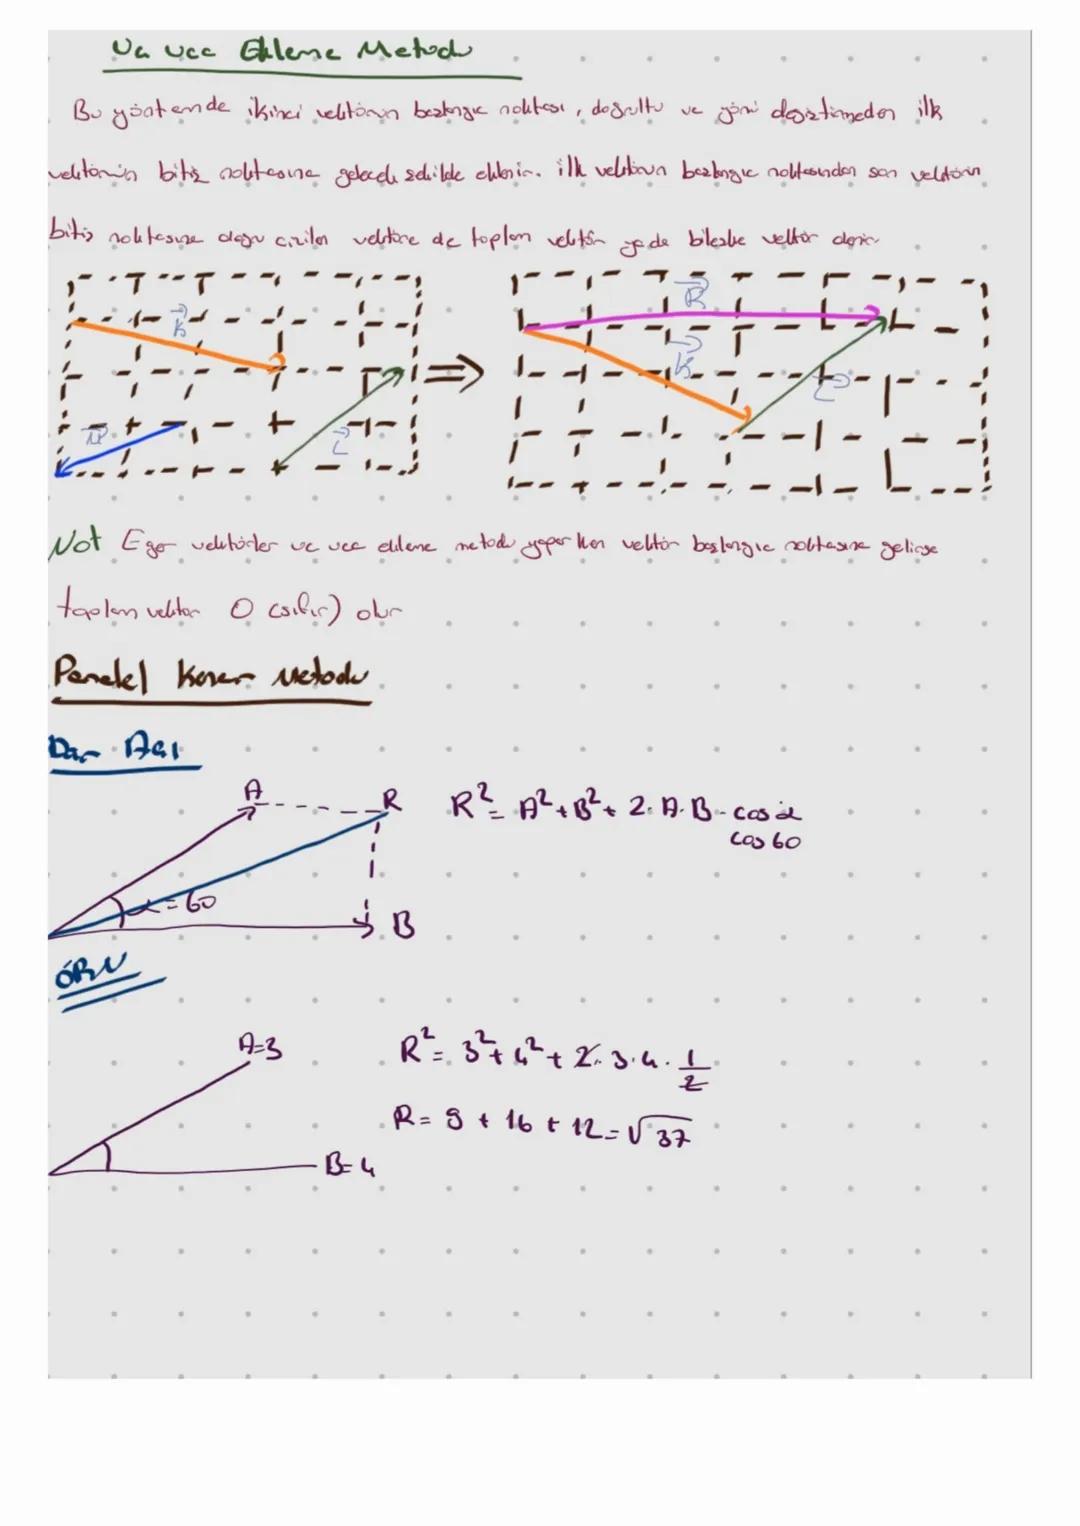 Uc uca Ekleme Metodu
Bu yöntemde ikinci vektörün başlangıc noktası, doğrultu ve yönü değiştirmeden ilk
vektörün bitiş noktasına gelecek şekilde eklenir. ilk vektörün başlangıc noktasından son vektörün
bitiş noktasına doğru cizilen vektöre de toplam vektör yada bileşke vektör denir
K
L
R
K
L
Not Eğer vektörler uc uca ekleme metodu yaparken vektör başlangıc noktasına gelirse
toplam vektör 0 (sıfır) olur
Paralel Kenar Metodu
Dar Açı
A R R² = A² + B² + 2. A. B. cos α
cos 60
α = 60
B
ÖRN
A=3 R² = 3² + 4² + 2. 3. 4. 1/2
R = 9 + 16 + 12 = √37
B=4